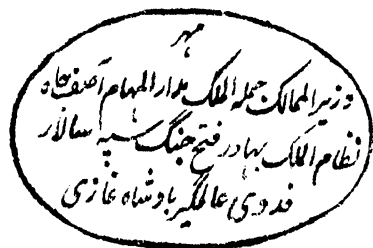 مہر
وزیر الممالک جملہ الملک مدار المہام آصف جاہ
نظام الملک بہادر فتح جنگ سپہ سالار
فدوی عالمگیر بادشاہ غازی